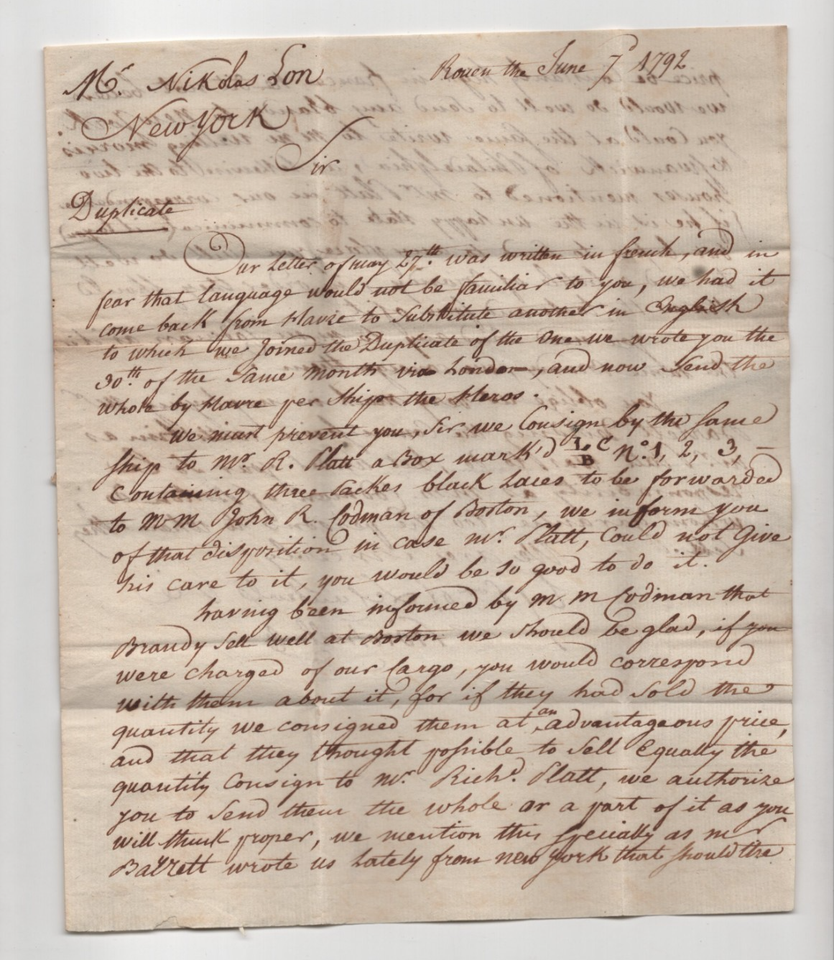 Mr. Nikolas Lon
Rouen the June 7d 1792
New York
Sir
Duplicate
Our Letter of may 27th. was written in french, and in
fear that language would not be familiar to you, we had it
come back from Havre to Substitute another in English
to which we Joined the Duplicate of the One we wrote you the
30th. of the Same Month via London, and now Send the
whole by Havre per Ship the Heros.
We must prevent you, Sir, we Consign by the Same
Ship to Mr. R. Platt a Box mark'd LC B No. 1, 2, 3, –
Containing three Sackes black Laces to be forwarded
to MM John R. Codman of Boston, we inform you
of that disposition in case Mr. Platt, Could not Give
his care to it, you would be so good to do it.
having been informed by M. M Codman that
Brandy Sell well at Boston we should be glad, if you
were charged of our Cargo, you would correspond
with them about it, for if they had Sold the
quantity we consigned them at an advantageous price,
and that they thought possible to Sell Equally the
quantity Consign to Mr. Richd. Platt, we authorize
you to Send them the whole or a part of it as you
will think proper, we mention this specially as Mr
Barrett wrote us Lately from New York that should the